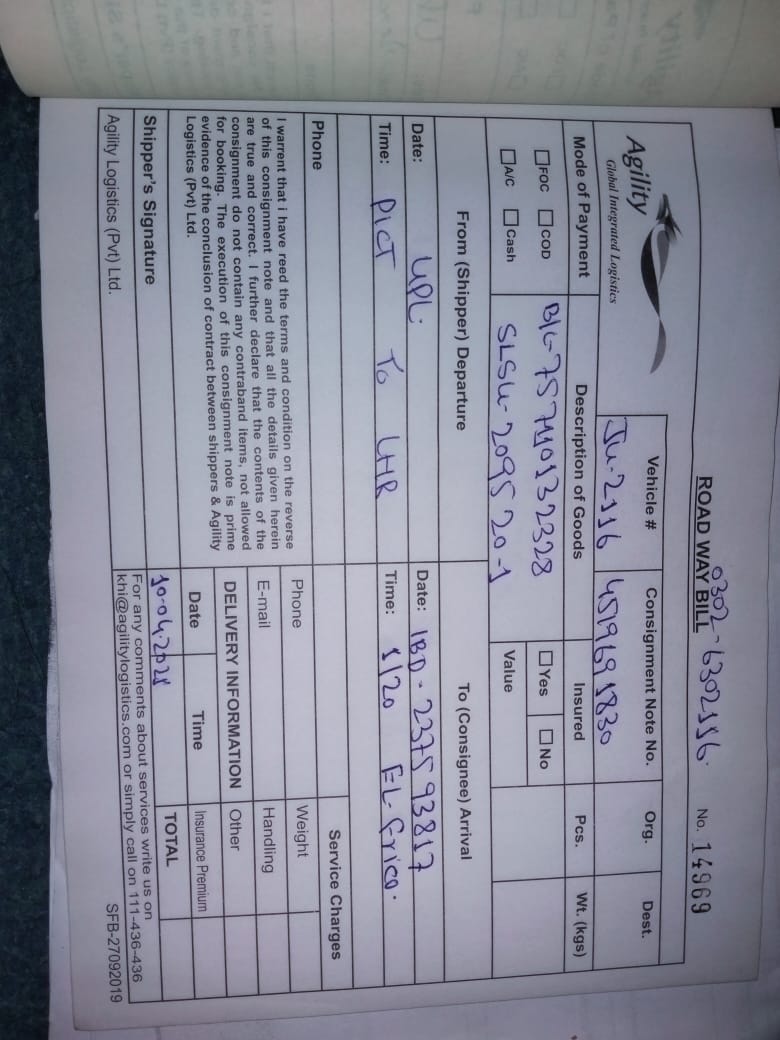 0302-6302116
ROAD WAY BILL No. 14969
Agility
Global Integrated Logistics
Vehicle # Consignment Note No. Org. Dest.
Ju-2116 4519691830
Mode of Payment Description of Goods Insured Pcs. Wt. (kgs)
FOC COD B/L-757110132328 Yes No
A/C Cash SLSU-209520-1 Value
From (Shipper) Departure To (Consignee) Arrival
Date: UPL Date: IBD-237593817
Time: PICT To LHR Time: 1/20 EL-Frico.
Service Charges
Phone
Phone Weight
I warrent that i have reed the terms and condition on the reverse
of this consignment note and that all the details given herein
are true and correct. I further declare that the contents of the
consignment do not contain any contraband items, not allowed
for booking. The execution of this consignment note is prime
evidence of the conclusion of contract between shippers & Agility
Logistics (Pvt) Ltd.
E-mail Handling
DELIVERY INFORMATION Other
Date Time Insurance Premium
10-04-2021 TOTAL
Shipper's Signature
For any comments about services write us on
khi@agilitylogistics.com or simply call on 111-436-436
Agility Logistics (Pvt) Ltd.
SFB-27092019